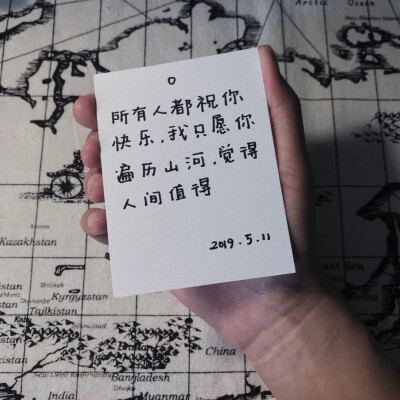 所有人都祝你
快乐,我只愿你
遍历山河,觉得
人间值得
2019.5.11
Arctic
Ocean
Kazakhstan
Kyrgyzstan
Tajikistan
China
Bangladesh
India
Myanmar